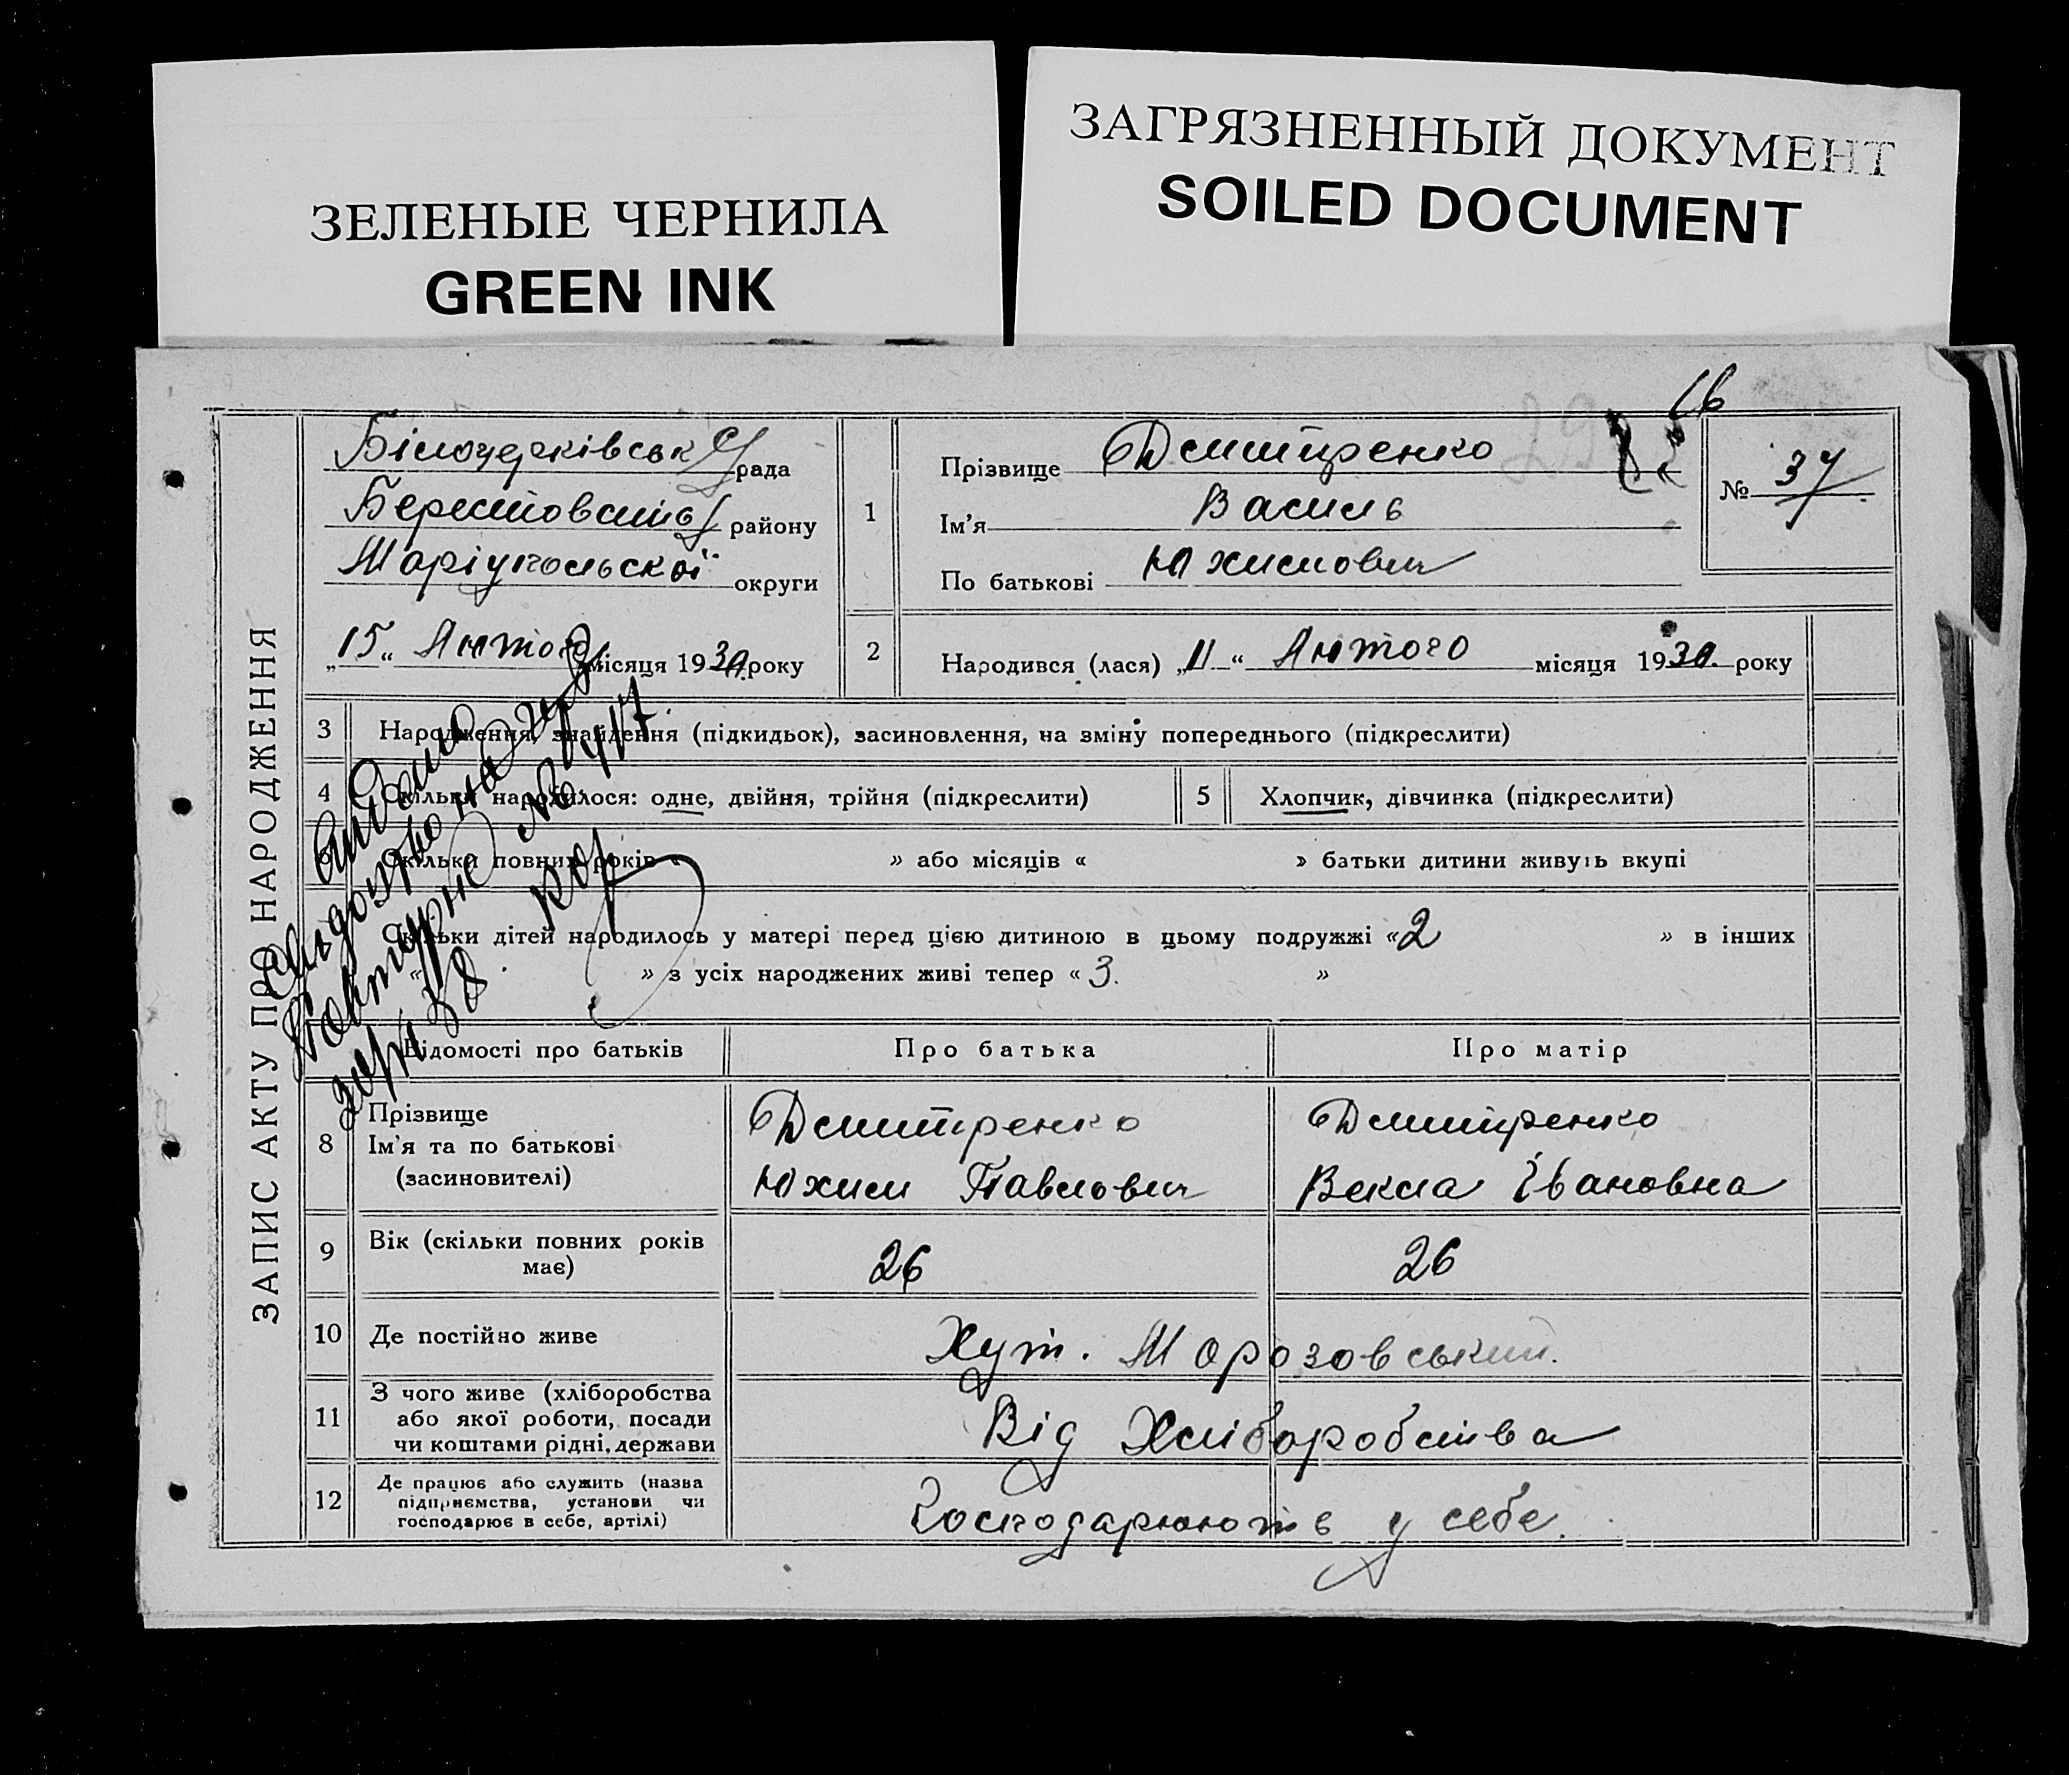 ЗЕЛЕНЫЕ ЧЕРНИЛА
GREEN INK
ЗАГРЯЗНЕННЫЙ ДОКУМЕНТ
SOILED DOCUMENT
16
ЗАПИС АКТУ ПРО НАРОДЖЕННЯ
Білоцерківськ рада
району
Маріупольської округи
„15“ Лютого місяця 1930 року
1
Прізвище Дмитренко
Ім'я Василь
По батькові Юхимович
№ 37
2
Народився (лася) „11“ Лютого місяця 1930 року
3 Народження, знайдення (підкидьок), засиновлення, на зміну попереднього (підкреслити)
4 Скільки народилося: одне, двійня, трійня (підкреслити)
5 Хлопчик, дівчинка (підкреслити)
Скільки повних років « » або місяців « » батьки дитини живуть вкупі
Скільки дітей народилось у матері перед цією дитиною в цьому подружжі «2 » в інших
« » з усіх народжених живі тепер «3. »
Відомості про батьків
Про батька
Про матір
8 Прізвище
Ім'я та по батькові
(засиновителі)
Дмитренко
Юхим Павлович
Дмитренко
Векла Івановна
9 Вік (скільки повних років
має)
26
26
10 Де постійно живе
Хут. Морозовський.
11 З чого живе (хліборобства
або якої роботи, посади
чи коштами рідні, держави
Від Хліборобства
12 Де працює або служить (назва
підприємства, установи чи
господарює в себе, артілі)
Господарюють у себе.